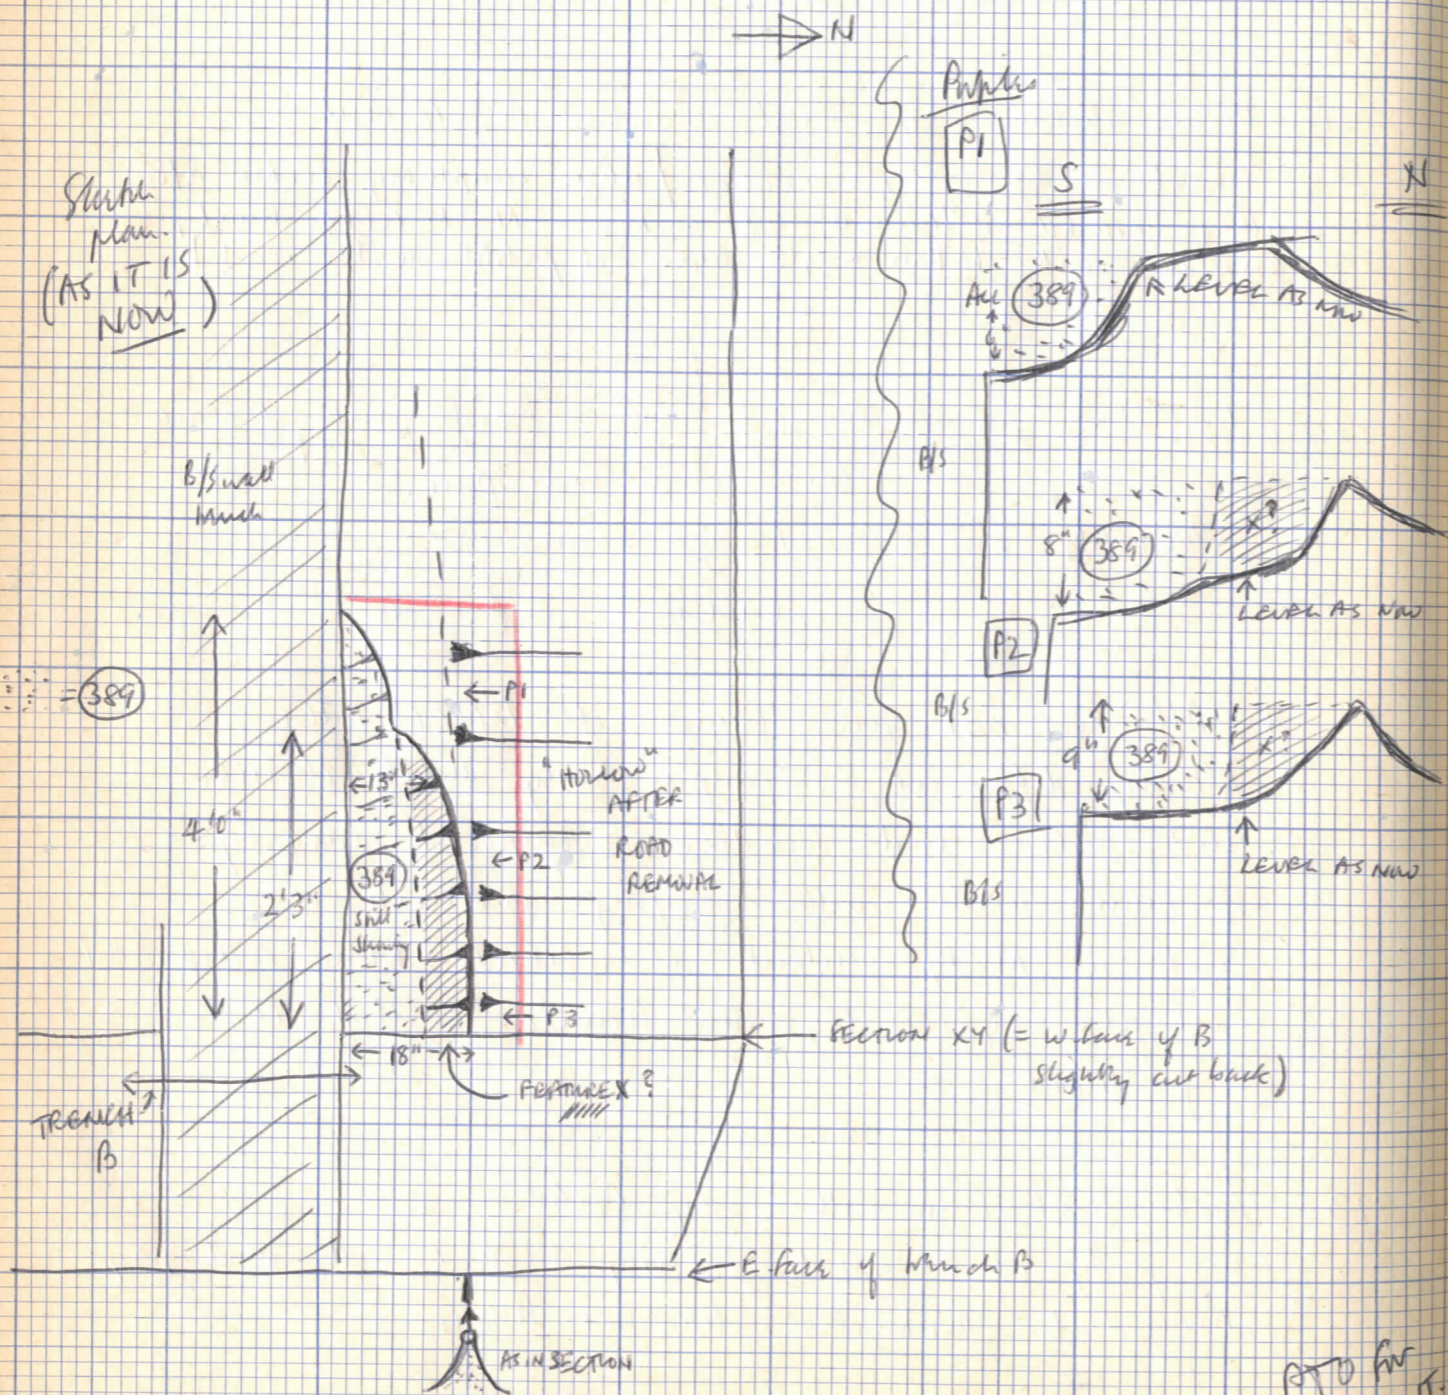 N
Sketch
plan.
(AS IT IS
NOW)
B/S wall
trench
= 389
4'0"
2'3"
13"
389
still
showing
← P1
"HOLLOW"
AFTER
ROAD
REMOVAL
← P2
← P3
← 18" →
FEATURE X?
TRENCH
B
SECTION XY (= W face of B
slightly cut back)
← E face of trench B
AS IN SECTION
Profiles
P1
S
N
All 389
6"
LEVEL AS NOW
B/S
8"
389
X?
LEVEL AS NOW
P2
B/S
9"
389
X?
P3
LEVEL AS NOW
B/S
PTO for